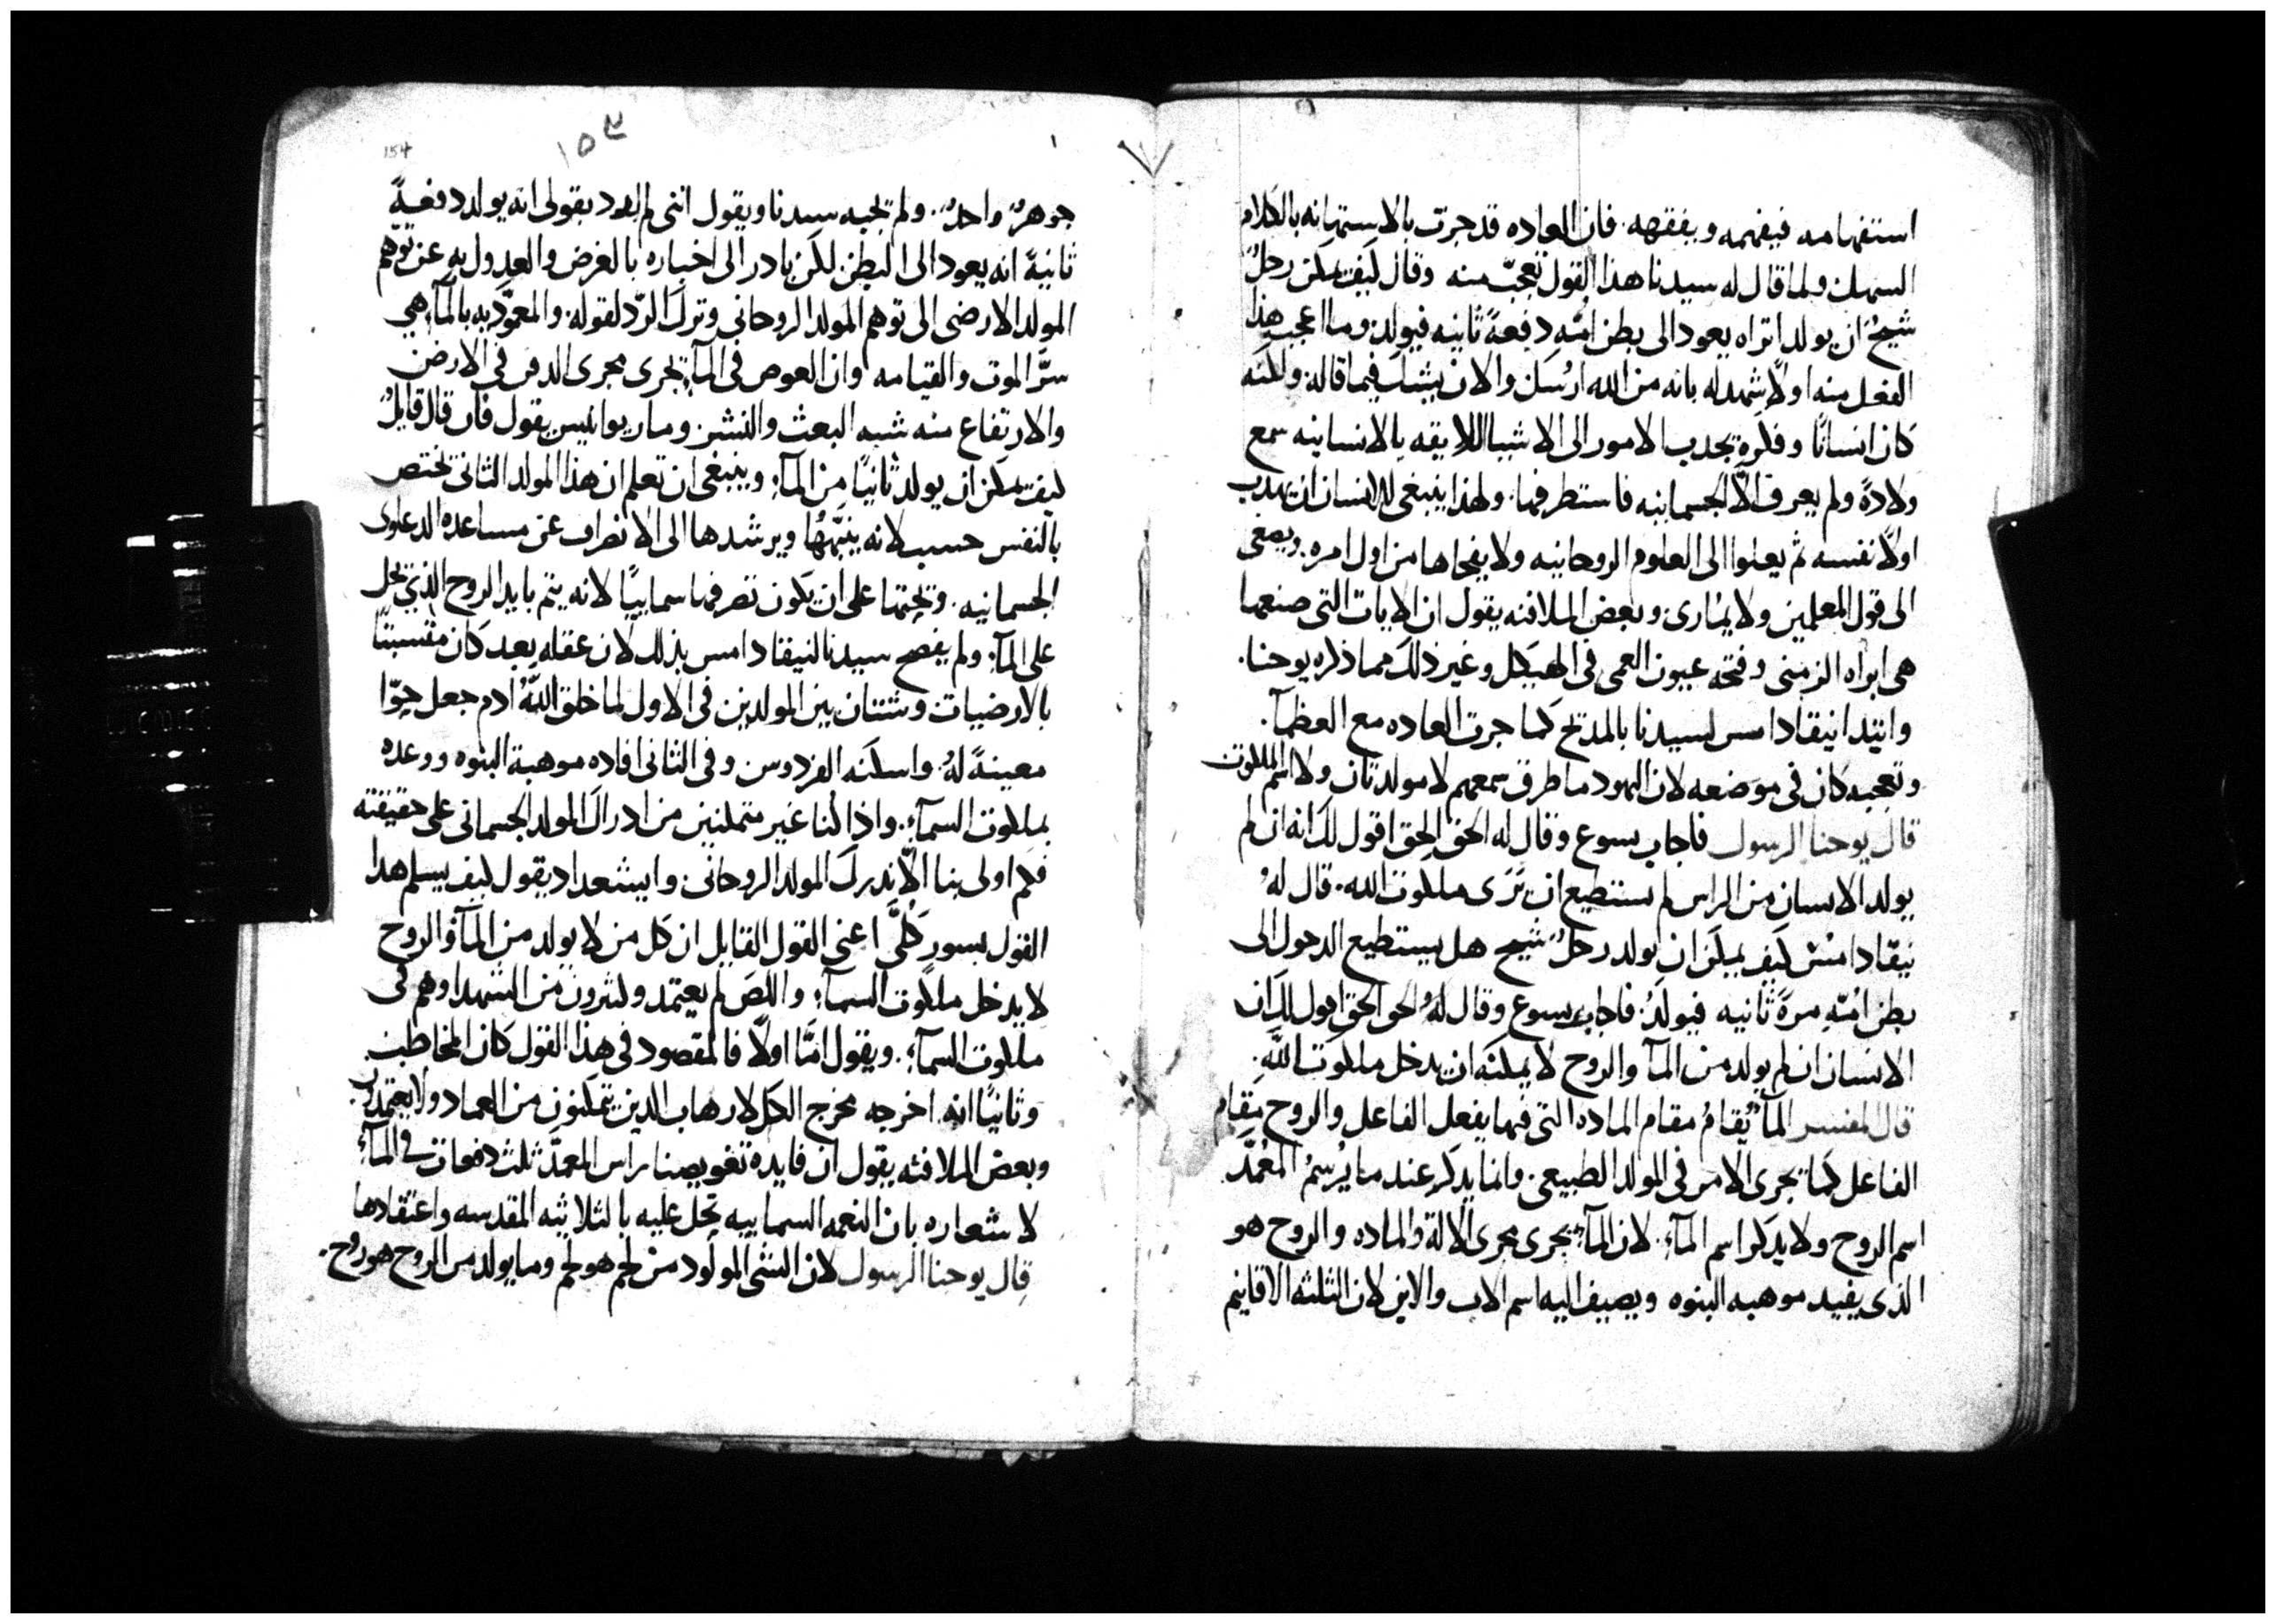 استفهامه فيفهمه ويفقهه. فان العاده قد جرت بالاستهانه بالكلام
السهل ولما قال له سيدنا هذا القول تعجب منه وقال كيف يمكن رجلٌ
شيخٌ ان يولد اتراه يعود الى بطن امّه دفعةً ثانيه فيولد. وما اعجب هذا
الفعل منه اولًا شهد له بانه من الله ارسل والان يشك فيما قاله. ولكنه
كان انسانًا وفكره يجدب الامور الى الاشيا اللايقه بالانسانيه سمع
ولادةً ولم يعرف الّا الجسمانيه فاستطرفها. ولهذا ينبغي للانسان ان يهذب
اولًا نفسه ثم يعلوا الى العلوم الروحانيه ولا يفجاها من اول امره. ويصغى
الى قول المعلمين ولا يمارى. وبعض الملافنه يقول ان الايات التى صنعها
هى ابراه الزمنى وفتحه عيون العمى فى الهيكل وغير ذلك مما ذكره يوحنا.
وابتدا نيقادامس لسيدنا بالمدح كما جرت العاده مع العظمآ.
وتعجبه كان فى موضعه لان اليهود ما طرق سمعهم لا مولد تان ولا اسم الملكوت
قال يوحنا الرسول فاجاب يسوع وقال له الحق الحق اقول لك انه ان لم
يولد الانسان من الراس لم يستطيع ان يَرَى ملكوت الله. قال لهُ
نيقادامس كيف يمكن ان يولد رجلٌ شيخ هل يستطيع الدخول الى
بطن امّهِ مرةً ثانيه فيولدُ. فاجاب يسوع وقال لهُ الحق الحق اقول لك ان
الانسان ان لم يولد من المآ والروح لا يمكنه ان يدخل ملكوت اللّه.
قال المفسر المآ يُقامُ مقام الماده التى فيها يفعل الفاعل والروح مقام
الفاعل كما تجرى الامر فى المولد الطبيعى. وانما يدكر عند ما يُرسمُ المعُمّد
اسم الروح ولا يدكر اسم المآء. لان المآء يجرى مجرى الالة والماده والروح هو
الذى يفيد موهبه البنوه ويصيف اليه اسم الاب والابن لان الثلثه الاقانيم
154
١٥٤
جوهرٌ واحدٌ. ولم يجبه سيدنا ويقول اننى لم اود بقولى انه يولد دفعةً
ثانيةً انه يعود الى البطن لكن بادر الى اخباره بالغرض والعدول به عن توهّم
المولد الارضى الى توهم المولد الروحانى وترك الردّ لقوله. والمعموديه بالمآء هى
سرَّ الموت والقيامه وان الغوص فى المآء يجرى مجرى الدفن فى الارض
والارتفاع منه شبه البعث والنشر. ومار يوانيس يقول فان قال قايلٌ
كيف يمكن ان يولد ثانيًا من المآء. وينبغى ان تعلم ان هذا المولد الثانى يختص
بالنفس حسب لانه ينبّهُها ويرشدها الى الانصراف عن مساعده الدعاوى
الجسمانيه. وتحثها على ان يكون تصرفها سماييًا لانه يتم بايد الروح الذى تحل
على المآء. ولم يفصح سيدنا لنيقادامس بذلك لان عقله بعد كان متشبثًا
بالارضيات وشتان بين المولدين فى الاول لما خلق اللّهُ ادم جعل حوّا
معينةً لهُ. واسكنه الفردوس وفى الثانى افاده موهبة البنوه ووعده
بملكوت السمآء. واذا كنا غير متمكنين من ادراك المولد الجسمانى على حقيقته
فكم اولى بنا الّا ندرك المولد الروحانى. وايشعداد يقول كيف يسلم هدا
القول بسور كُلّى اعنى القول القايل ان كل من لا يولد من المآ والروح
لا يدخل ملكوت السمآء. واللص لم يعتمد وكثيرون من الشهدا وهم فى
ملكوت السمآء. ويقول امَّا اولًا فالمقصود فى هذا القول كان المخاطب.
وثانيًا انه اخرجه مخرج الكل لارهاب الدين يتمكنون من العماد ولا يعتمدون.
وبعض الملافنه يقول ان فايدة تغويصنا راس المعمدّ ثلث دفعات فى المآء
لاشعاره بان النعمه السماييه تحل عليه بالثلاثيه المقدسه واعتقادها
قال يوحنا الرسول لان الشى المولود من لحم هو لحم وما يولد من الروح هو روح.